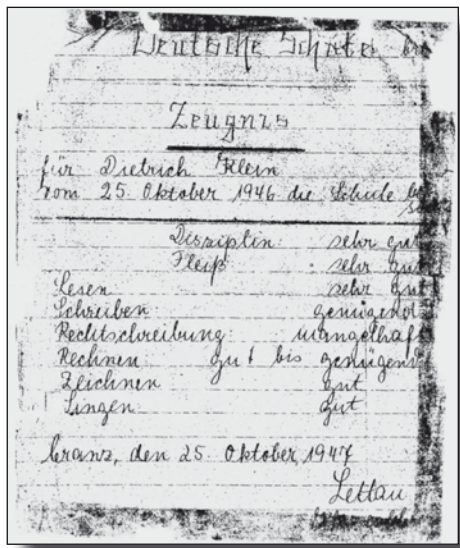 Deutsche Schule
Zeugnis
für Dietrich Klein
vom 25. Oktober 1946 die Schule
Disziplin sehr gut
Fleiß sehr gut
Lesen sehr gut
Schreiben genügend
Rechtschreibung mangelhaft
Rechnen gut bis genügend
Zeichnen gut
Singen gut
Cranz, den 25. Oktober 1947
Lettau